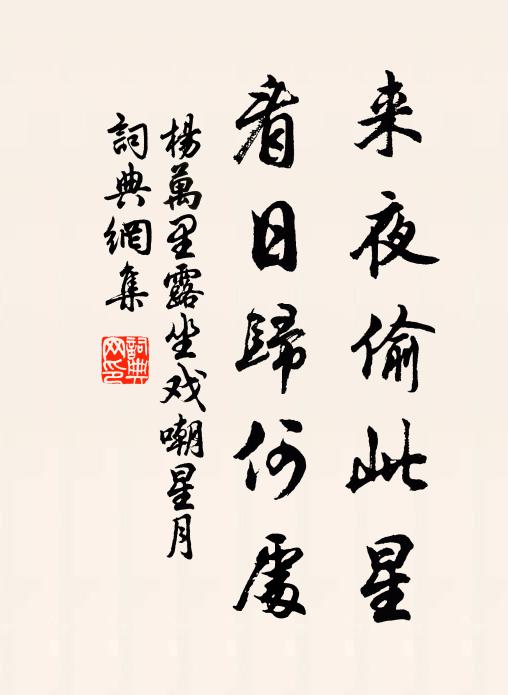 来夜偷此星
看日歸何處
楊萬里露坐戏嘲星月
詞典網集
詞典网印